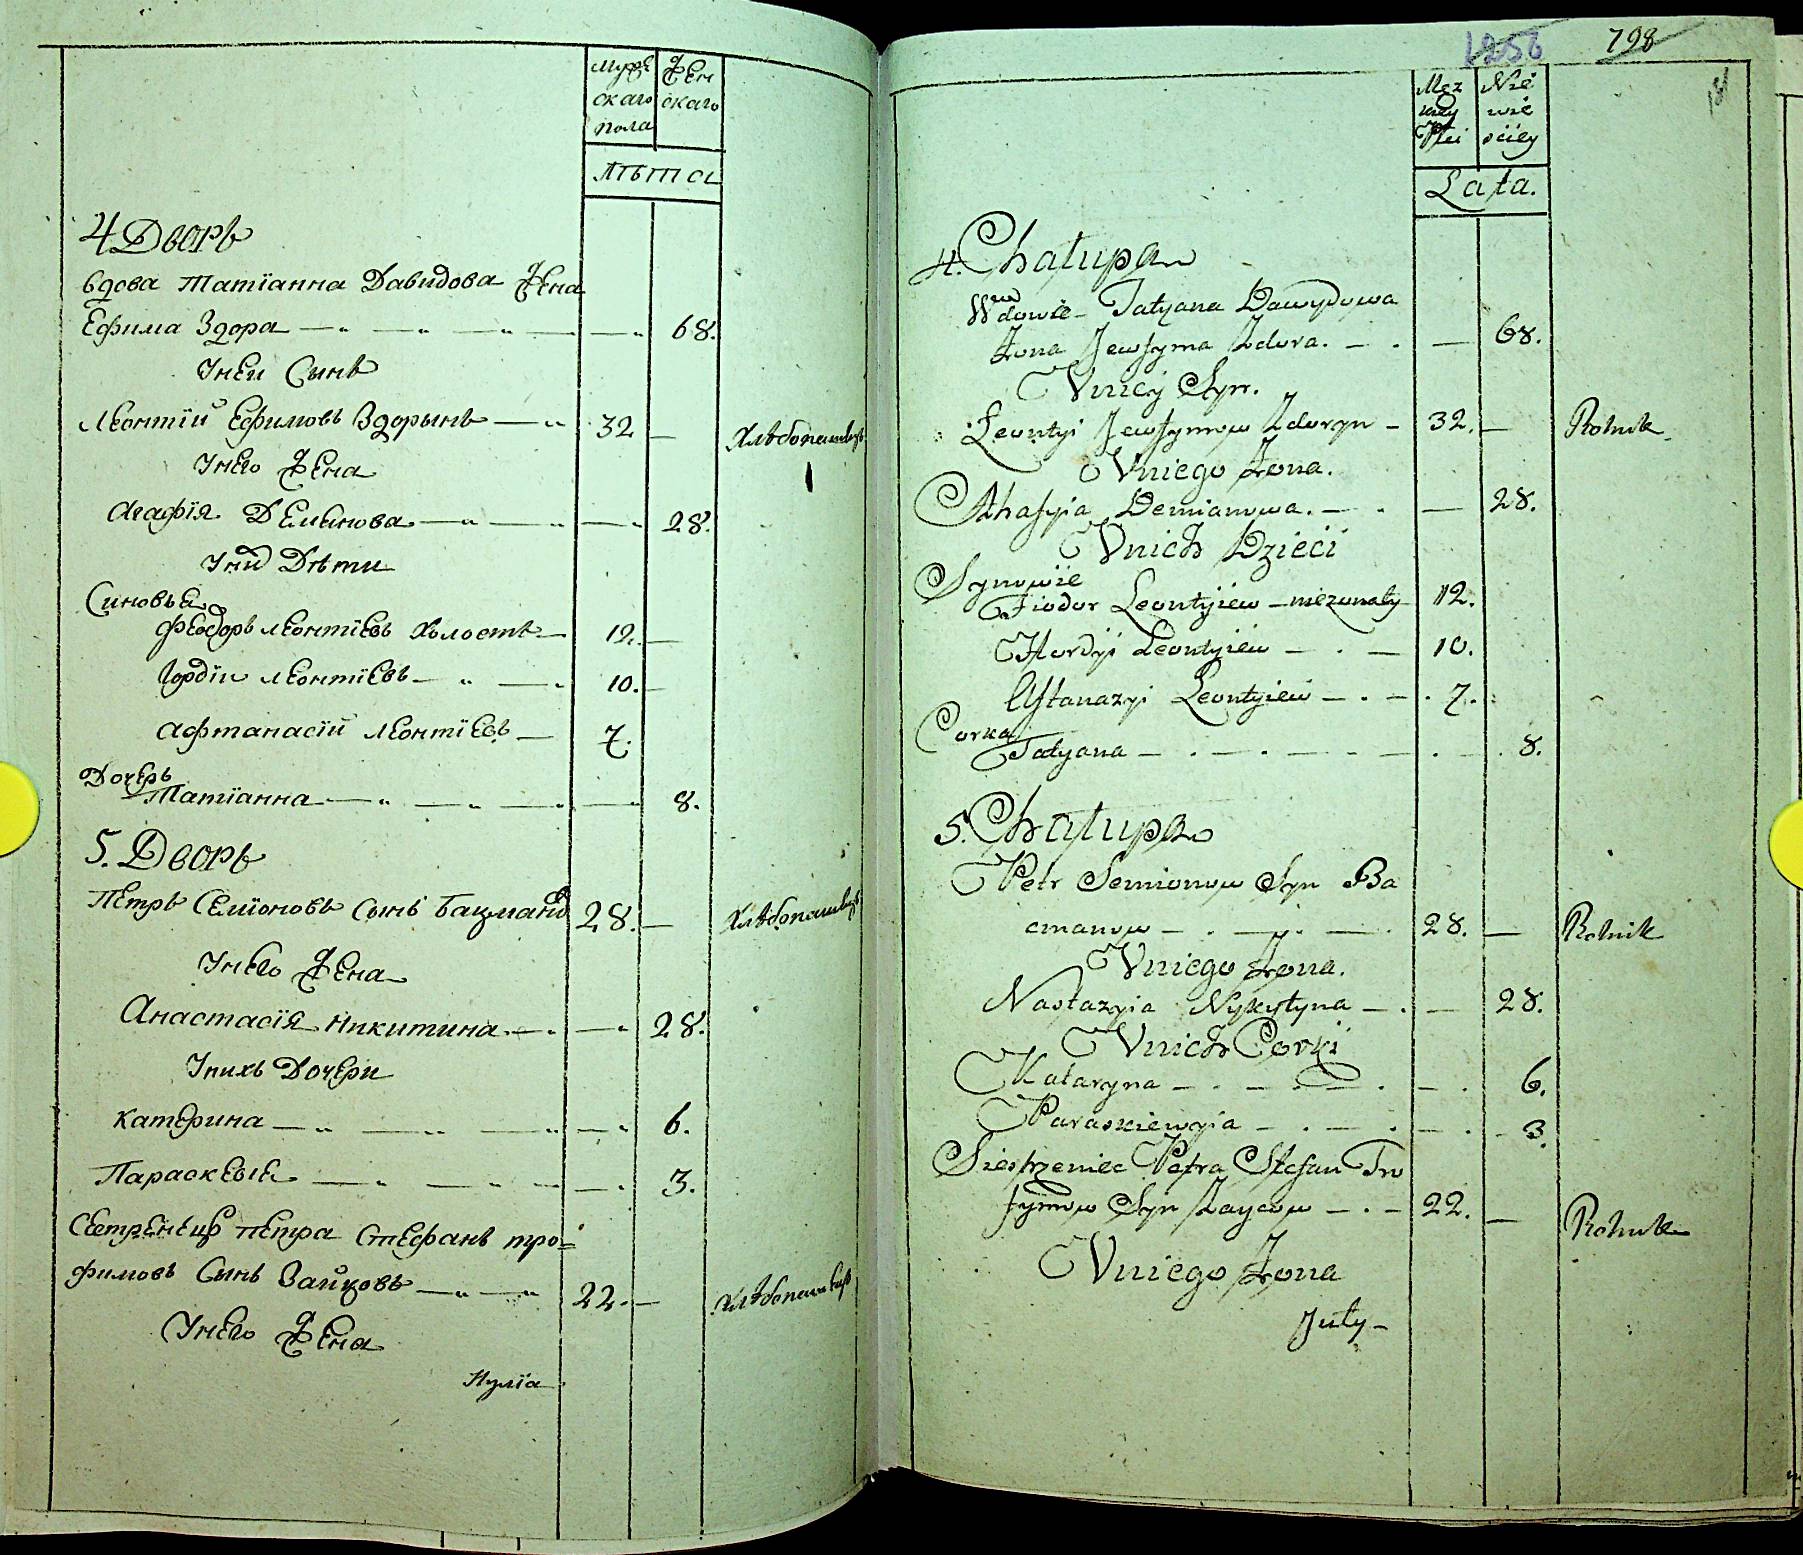 Муже Жен
скаго скаго
пола
Лѣта
4 Дворъ
Вдова Татіанна Давидова Жена
Ефима Здора 68.
Унеи Сынъ
Леонтій Ефимовъ Здорынъ 32 Хлѣбопашецъ
Унего Жена
Агафія Деміянова 28.
Уних Дѣти
Синовья
Феодоръ Леонтіевъ Холостъ 12.
Гордіи Леонтіевъ 10.
Афтанасіи Леонтіевъ 7.
Дочерь
Татіанна 8.
5. Дворъ
Петръ Семіоновъ Сынъ Бацманов 28. Хлѣбопашецъ
Унего Жена
Анастасія Никитина 28.
Унихъ Дочери
Катерина 6.
Параскевья 3.
Сестренецъ Петра Стефанъ Тро=
фимовъ Сынъ Зайцовъ 22. Хлѣбопашецъ
Унего Жена
Іулія
1256 798
Męz Nie
kiey wie
Płci sciiey
Lata.
4. Chałupa
Wdowie Tatyana Dawydowa
Zona Jewfyma Zdora. 68.
Vniey Syn.
Leontyi Jewfymow Zdoryn 32. Rolnik
Vniego Zona.
Ahafyia Demianowa. 28.
Vnich Dzieci
Synowie
Fiodor Leontyiew niezonaty 12.
Hordyi Leontyiew 10.
Aftanazyi Leontyiew 7.
Corka
Tatyana 8.
5. Chałupa
Petr Semionow Syn Ba
cmanow 28. Rolnik
Vniego Zona.
Nastazyia Nykytyna 28.
Vnich Corki
Kataryna 6.
Paraskiewyia 3.
Siestrzeniec Petra Stefan Tro
fymow Syn Zaycow 22. Rolnik
Vniego Zona
Juły